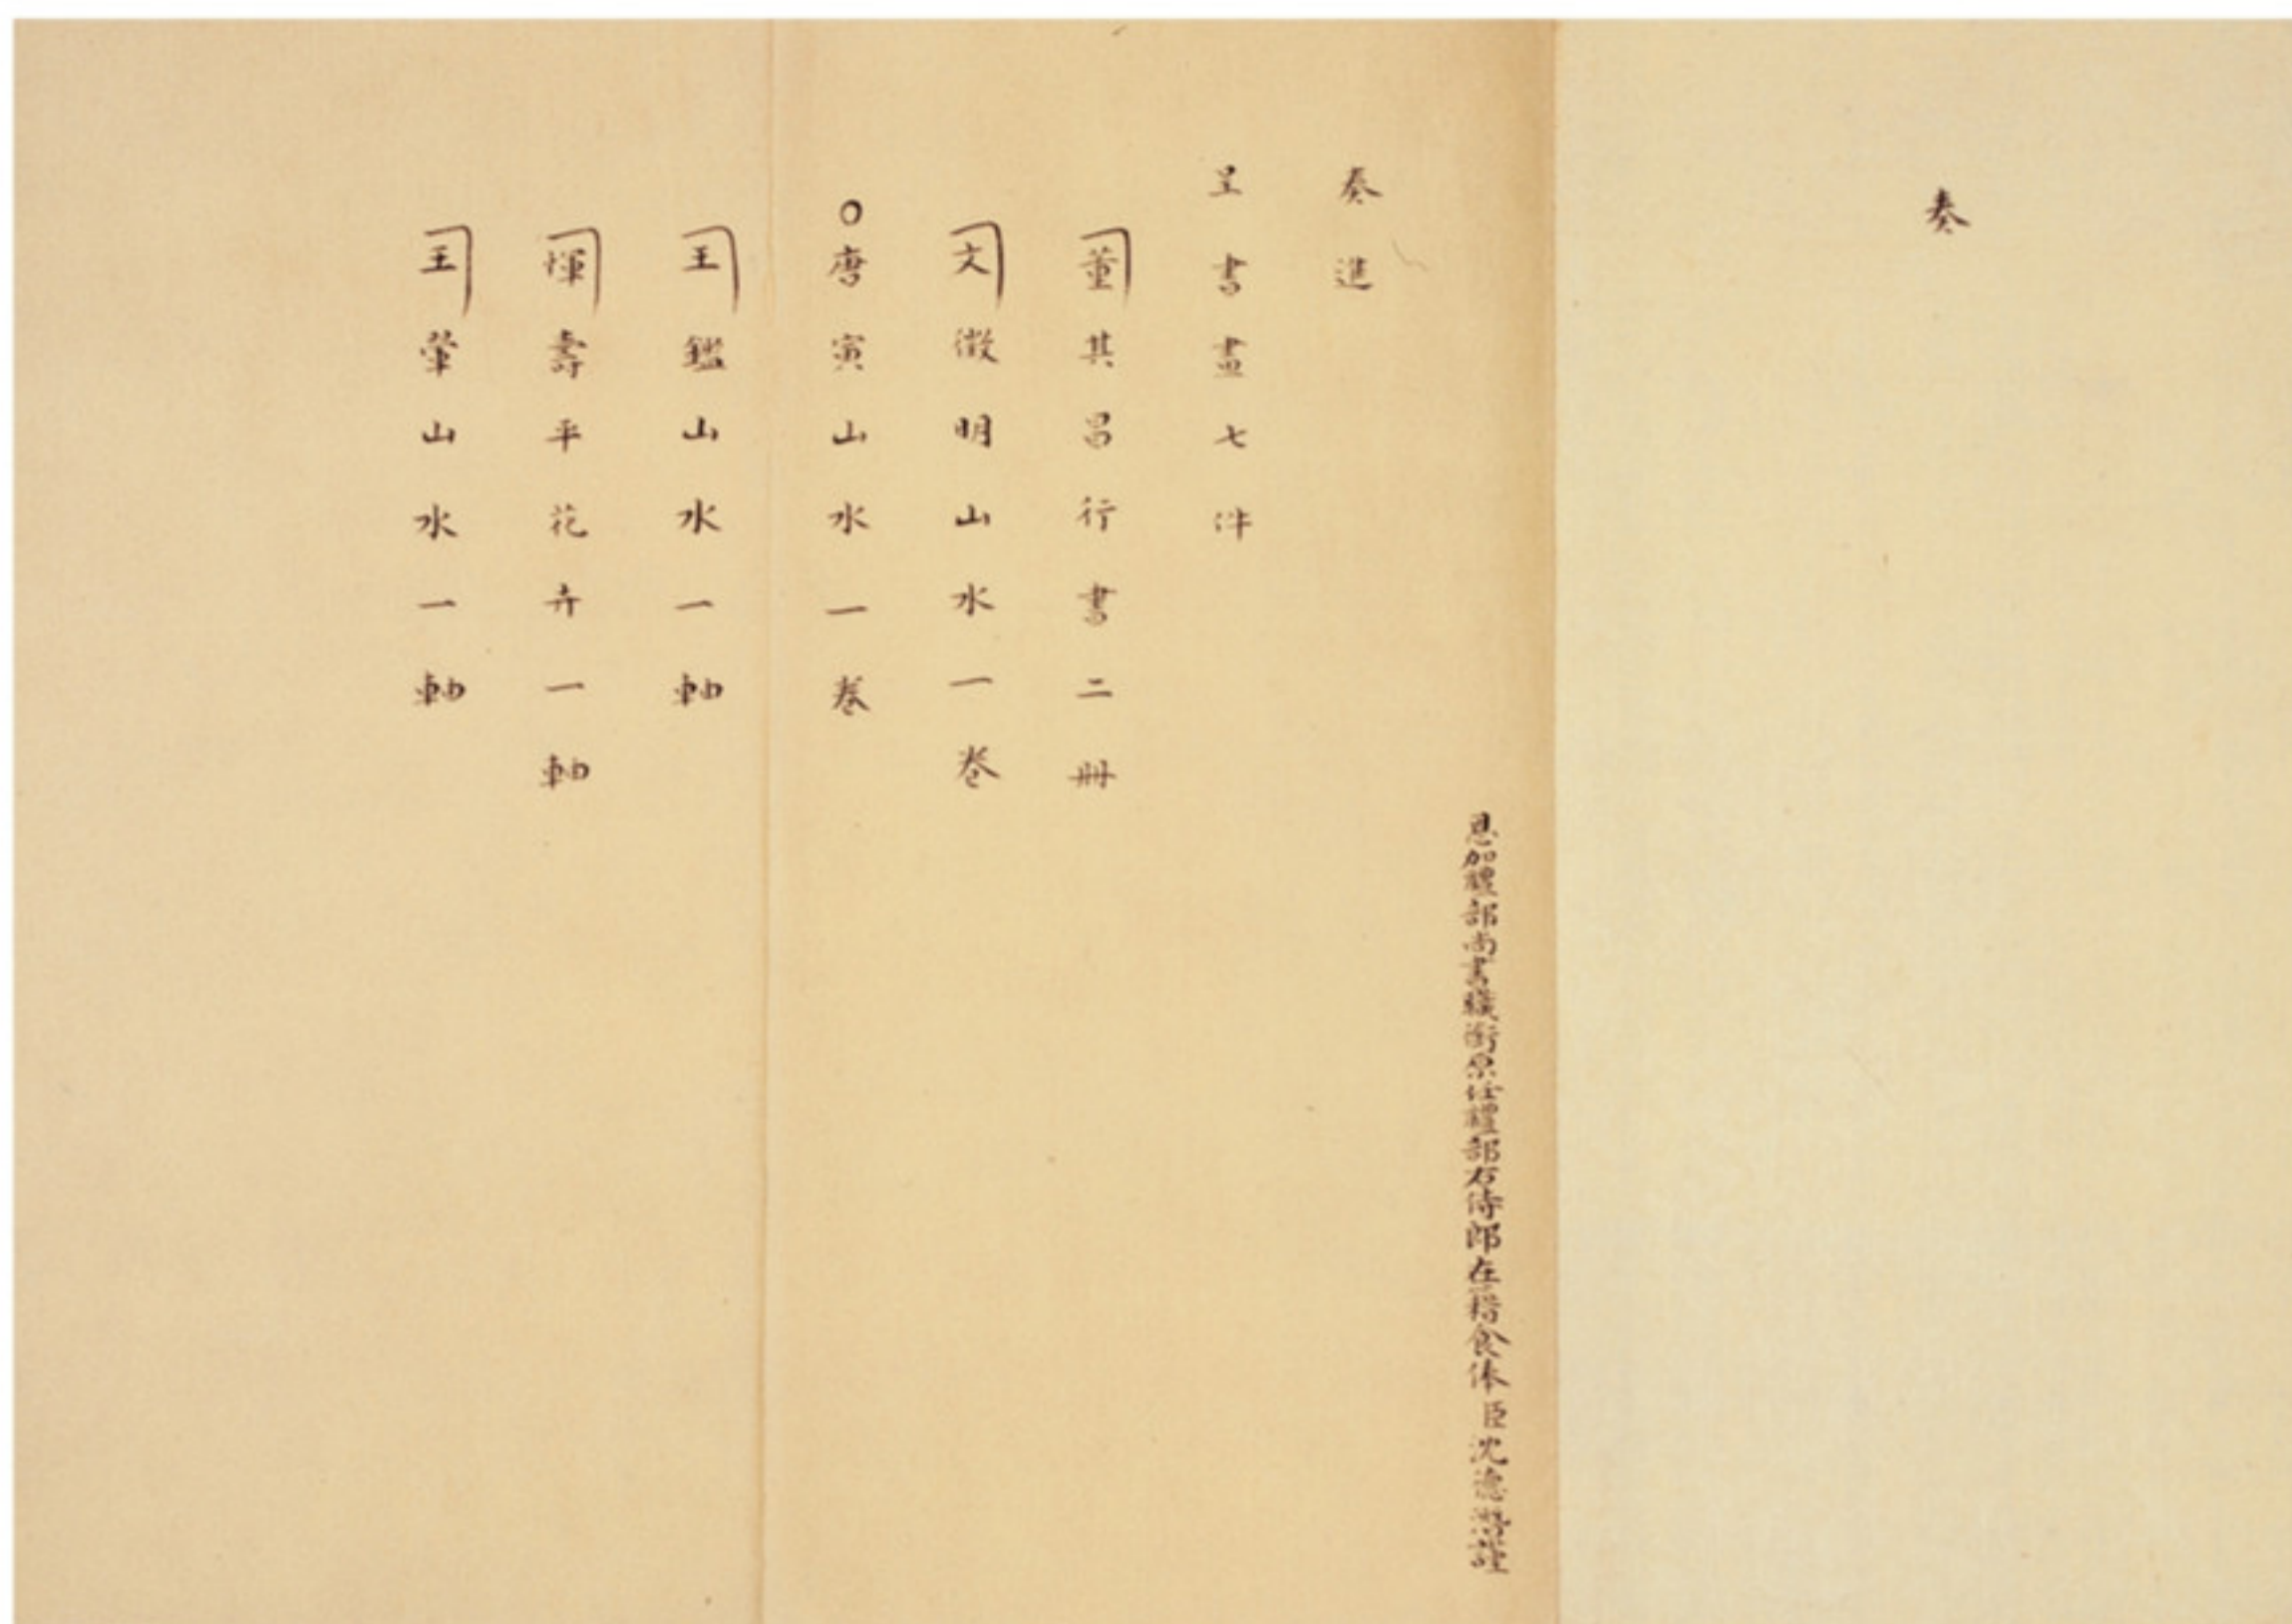 奏
恩加禮部尚書職銜原任禮部右侍郎在籍食俸臣沈德潛謹
奏進
呈書畫七件
董其昌行書二冊
文徵明山水一卷
唐寅山水一卷
王鑑山水一軸
惲壽平花卉一軸
王翬山水一軸